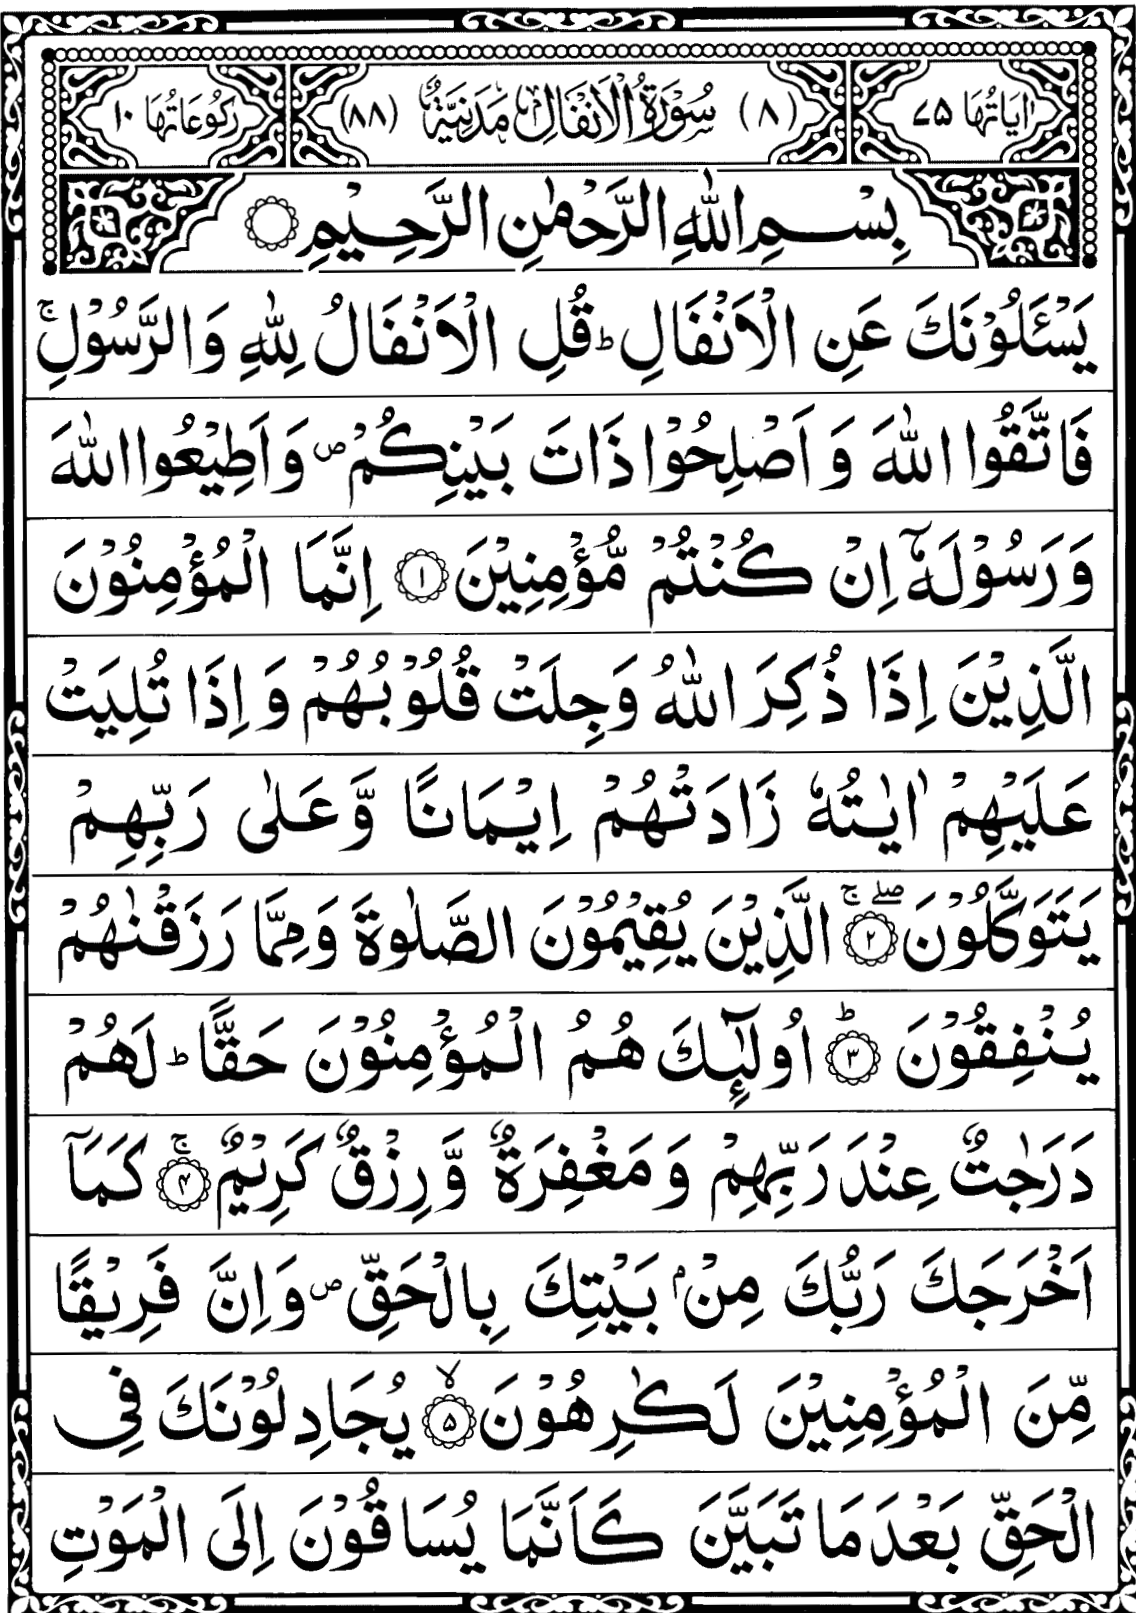 اٰيَاتُهَا ٧٥ (٨) سُوْرَةُ الْاَنْفَالِ مَدَنِيَّةٌ (٨٨) رُكُوْعَاتُهَا ١٠
بِسْمِ اللّٰهِ الرَّحْمٰنِ الرَّحِيْمِ ۝
يَسْـَٔلُوْنَكَ عَنِ الْاَنْفَالِ ؕ قُلِ الْاَنْفَالُ لِلّٰهِ وَالرَّسُوْلِ ۚ
فَاتَّقُوا اللّٰهَ وَ اَصْلِحُوْا ذَاتَ بَيْنِكُمْ ۪ وَ اَطِيْعُوا اللّٰهَ
وَ رَسُوْلَهٗۤ اِنْ كُنْتُمْ مُّؤْمِنِيْنَ ۝۱ اِنَّمَا الْمُؤْمِنُوْنَ
الَّذِيْنَ اِذَا ذُكِرَ اللّٰهُ وَجِلَتْ قُلُوْبُهُمْ وَ اِذَا تُلِيَتْ
عَلَيْهِمْ اٰيٰتُهٗ زَادَتْهُمْ اِيْمَانًا وَّ عَلٰى رَبِّهِمْ
يَتَوَكَّلُوْنَ ۝۲ۖۚ الَّذِيْنَ يُقِيْمُوْنَ الصَّلٰوةَ وَ مِمَّا رَزَقْنٰهُمْ
يُنْفِقُوْنَ ۝۳ؕ اُولٰٓئِكَ هُمُ الْمُؤْمِنُوْنَ حَقًّا ؕ لَهُمْ
دَرَجٰتٌ عِنْدَ رَبِّهِمْ وَ مَغْفِرَةٌ وَّ رِزْقٌ كَرِيْمٌ ۝۴ۚ كَمَاۤ
اَخْرَجَكَ رَبُّكَ مِنْۢ بَيْتِكَ بِالْحَقِّ ۪ وَ اِنَّ فَرِيْقًا
مِّنَ الْمُؤْمِنِيْنَ لَكٰرِهُوْنَ ۝۵ۙ يُجَادِلُوْنَكَ فِي
الْحَقِّ بَعْدَ مَا تَبَيَّنَ كَاَنَّمَا يُسَاقُوْنَ اِلَى الْمَوْتِ